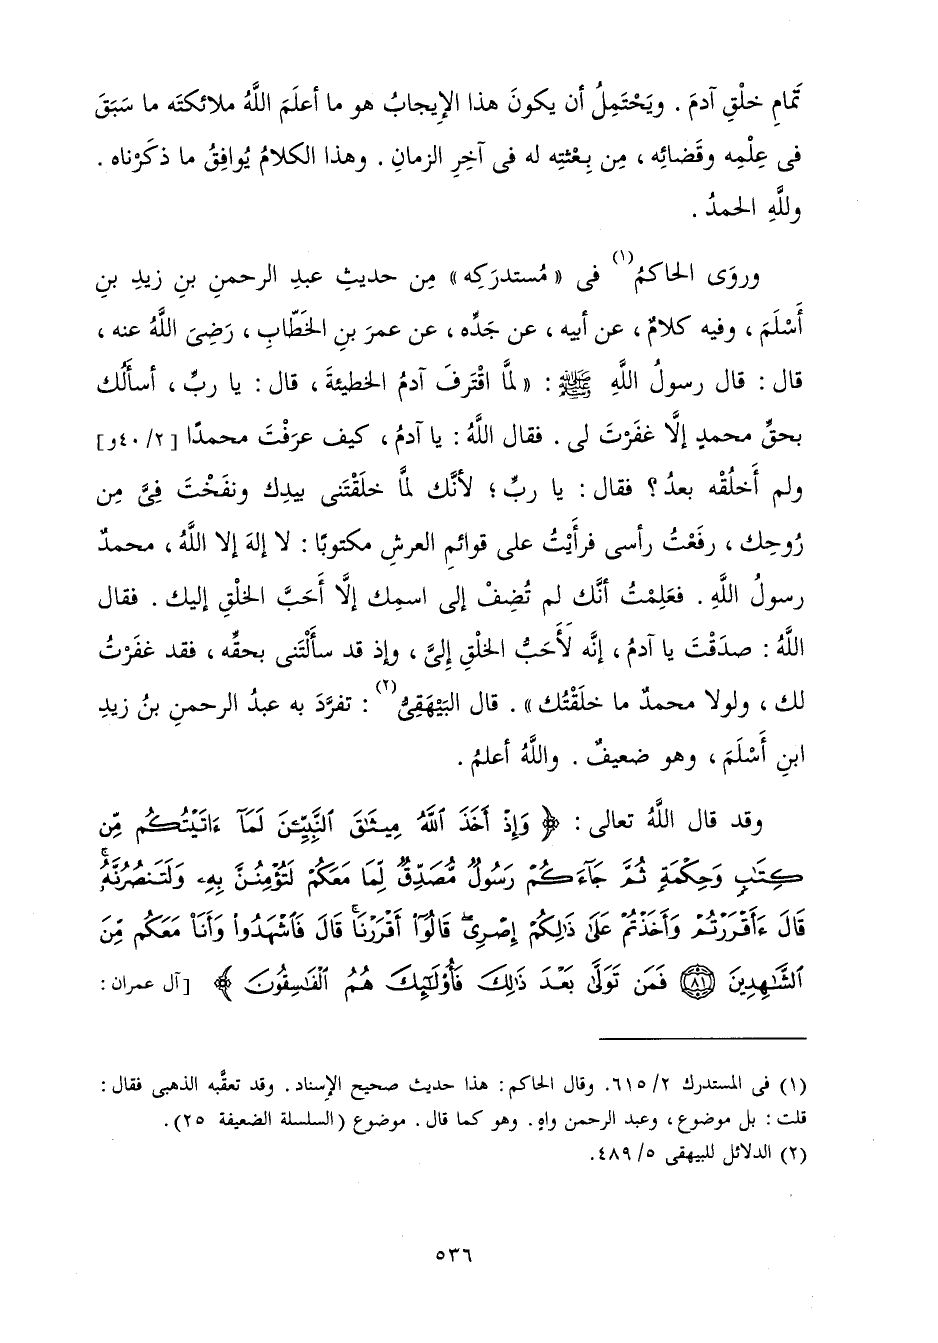 تَمامِ خلْقِ آدمَ . ويَحْتَمِلُ أن يكونَ هذا الإيجابُ هو ما أعلَمَ اللَّهُ ملائكتَه ما سَبَقَ
فى عِلْمِه وقَضائِه ، مِن بِعْثتِه له فى آخِرِ الزمانِ . وهذا الكلامُ يُوافِقُ ما ذكَرْناه .
وللَّهِ الحمدُ .
وروَى الحاكمُ(١) فى « مُستدرَكِه » مِن حديثِ عبدِ الرحمنِ بنِ زيدِ بنِ
أَسْلَمَ ، وفيه كلامٌ ، عن أبيه ، عن جَدِّه ، عن عمرَ بنِ الخَطّابِ ، رَضِىَ اللَّهُ عنه ،
قال : قال رسولُ اللَّهِ ﷺ : « لمَّا اقْتَرفَ آدمُ الخطيئةَ ، قال : يا ربِّ ، أسألُك
بحقِّ محمدٍ إلَّا غفَرْتَ لى . فقال اللَّهُ : يا آدمُ ، كيف عرَفْتَ محمدًا [ ٢/ ٤٠و]
ولم أَخلُقْه بعدُ ؟ فقال : يا ربِّ ؛ لأنَّك لمَّا خلَقْتَنى بيدِك ونفَخْتَ فِىَّ مِن
رُوحِك ، رفَعْتُ رأسى فرأيْتُ على قوائمِ العرشِ مكتوبًا : لا إلهَ إلا اللَّهُ ، محمدٌ
رسولُ اللَّهِ . فعَلِمْتُ أنَّك لم تُضِفْ إلى اسمِك إلَّا أَحَبَّ الخلْقِ إليك . فقال
اللَّهُ : صدَقْتَ يا آدمُ ، إنَّه لَأَحَبُّ الخلْقِ إلىَّ ، وإذ قد سألْتَنى بحقِّه ، فقد غفَرْتُ
لك ، ولولا محمدٌ ما خلَقْتُك » . قال البَيْهَقِىُّ(٢) : تفرَّدَ به عبدُ الرحمنِ بنُ زيدِ
ابنِ أَسْلَمَ ، وهو ضعيفٌ . واللَّهُ أعلمُ .
وقد قال اللَّهُ تعالى : ﴿ وَإِذْ أَخَذَ ٱللَّهُ مِيثَـٰقَ ٱلنَّبِيِّـۧنَ لَمَآ ءَاتَيْتُكُم مِّن
كِتَـٰبٍ وَحِكْمَةٍ ثُمَّ جَآءَكُمْ رَسُولٌ مُّصَدِّقٌ لِّمَا مَعَكُمْ لَتُؤْمِنُنَّ بِهِۦ وَلَتَنصُرُنَّهُۥۚ
قَالَ ءَأَقْرَرْتُمْ وَأَخَذْتُمْ عَلَىٰ ذَٰلِكُمْ إِصْرِىۖ قَالُوٓا۟ أَقْرَرْنَاۚ قَالَ فَٱشْهَدُوا۟ وَأَنَا۠ مَعَكُم مِّنَ
ٱلشَّـٰهِدِينَ (٨١) فَمَن تَوَلَّىٰ بَعْدَ ذَٰلِكَ فَأُو۟لَـٰٓئِكَ هُمُ ٱلْفَـٰسِقُونَ ﴾ [ آل عمران :
(١) فى المستدرك ٢/ ٦١٥. وقال الحاكم : هذا حديث صحيح الإسناد . وقد تعقَّبه الذهبى فقال :
قلت : بل موضوع ، وعبد الرحمن واهٍ . وهو كما قال . موضوع (السلسلة الضعيفة ٢٥).
(٢) الدلائل للبيهقى ٥/ ٤٨٩.
٥٣٦